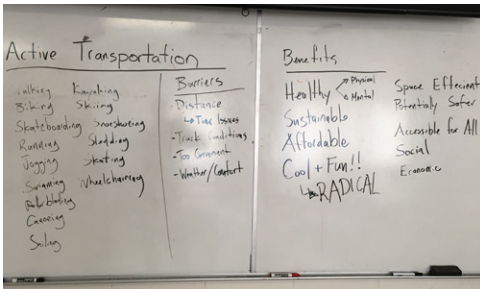 Active Transportation
Walking
Biking
Skateboarding
Running
Jogging
Swimming
Rollerblading
Canoeing
Sailing
Kayaking
Skiing
Snowshoeing
Sledding
Skating
Wheelchairing
Barriers
- Distance
↳ Time Issues
- Track Conditions
- Too Convenient
- Weather/Comfort
Benefits
Healthy
Physical
Mental
Sustainable
Affordable
Cool + Fun!!
↳ RADICAL
Space Effecient
Potentially Safer
Accessible for All
Social
Economic